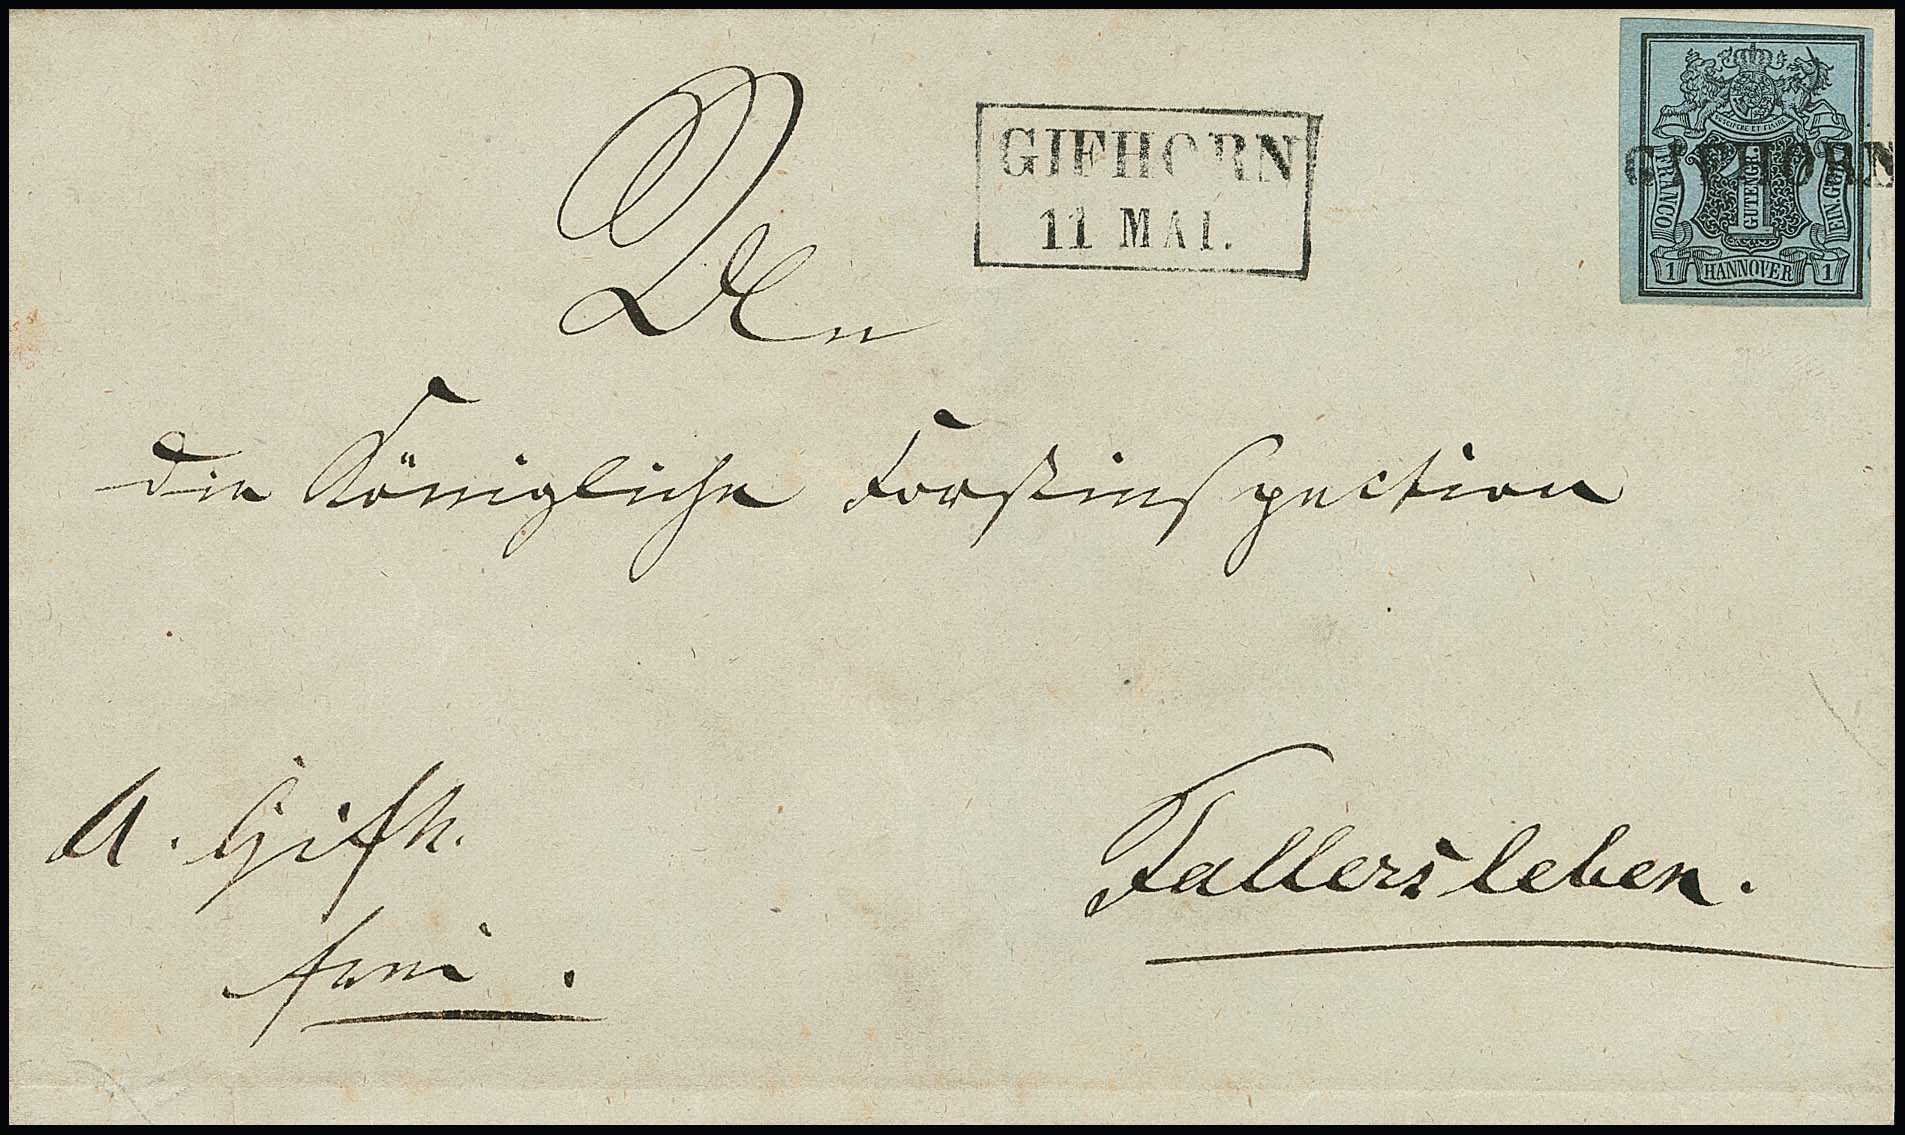 An
GIFHORN
11 MAI.
SUSCIPERE ET FINIRE
GIFHORN
FRANCO
1 GUTENGR.
EIN. GGR.
1 HANNOVER 1
die Königliche Forstinspection
A. Gifh.
frei.
Fallersleben.